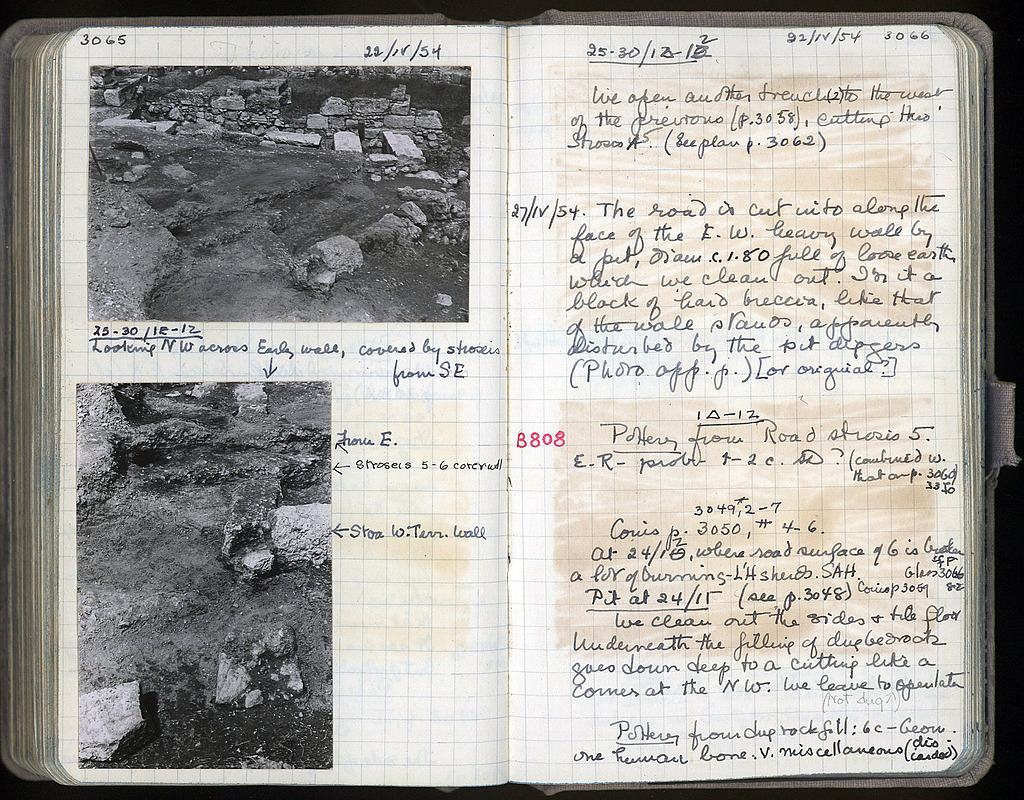 3065
22/IV/54
25-30/IE-12
Looking NW across Early wall, covered by stroseis
from SE
from E.
← Stroseis 5-6 cover wall
← Stoa W. Terr. Wall
22/IV/54 3066
25-30/1Δ-12
We open another trench (2) to the west
of the previous (p. 3058), cutting thro'
Strosis 5. (See plan p. 3062)
27/IV/54. The road is cut into along the
face of the E.W. heavy wall by
a pit, diam. c. 1.80 full of loose earth
which we clean out. In it a
block of hard breccia, like that
of the wall stands, apparently
disturbed by the pit diggers
(Photo opp. p.) [or original?]
1Δ-12
B808
Pottery from Road strosis 5.
E.R- probe 1-2 c. AD? (combined w.
that on p. 3060)
3049, 2-7
Coins p. 3050, # 4-6.
At 24/, where road surface of 6 is broken
a lot of burning - LH sherds. SAH. Glass 3066
Coins p 3059
Pit at 24/1Γ (see p. 3048)
We clean out the sides & tile floor
Underneath the filling of dug bedrock
goes down deep to a cutting like a
corner at the NW. We leave to open later
(Not dug!)
Pottery from dug rock fill: 6c-Geom.
one human bone. V. miscellaneous (dis
carded)